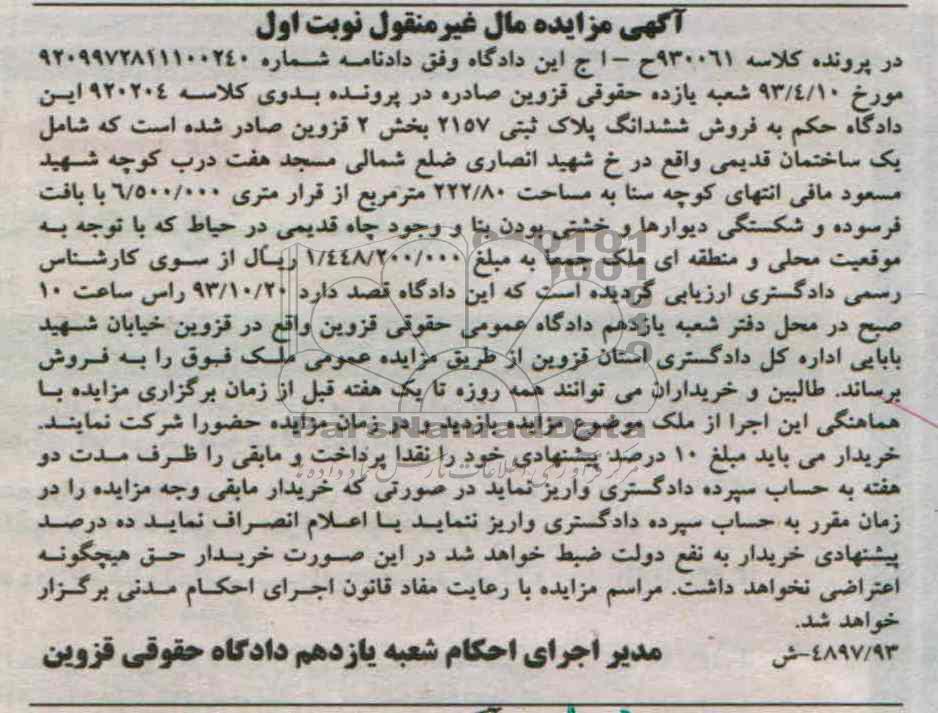 آگهی مزایده مال غیرمنقول نوبت اول
در پرونده کلاسه ۹۳۰۰۶۱ح -ا ج این دادگاه وفق دادنامه شماره ۹۲۰۹۹۷۲۸۱۱۱۰۰۲۴۰
مورخ ۹۳/٤/۱۰ شعبه یازده حقوقی قزوین صادره در پرونده بدوی کلاسه ۹۲۰۲۰٤ این
دادگاه حکم به فروش ششدانگ پلاک ثبتی ۲۱۵۷ بخش ۲ قزوین صادر شده است که شامل
یک ساختمان قدیمی واقع در خ شهید انصاری ضلع شمالی مسجد هفت درب کوچه شهید
مسعود مافی انتهای کوچه سنا به مساحت ۲۲۲/۸۰ مترمربع از قرار متری ٦/۵۰۰/۰۰۰ با بافت
فرسوده و شکستگی دیوارها و خشتی بودن بنا و وجود چاه قدیمی در حیاط که با توجه به
موقعیت محلی و منطقه ای ملک جمعا به مبلغ ۱/٤٤۸/۲۰۰/۰۰۰ ریال از سوی کارشناس
رسمی دادگستری ارزیابی گردیده است که این دادگاه قصد دارد ۹۳/۱۰/۲۰ راس ساعت ۱۰
صبح در محل دفتر شعبه یازدهم دادگاه عمومی حقوقی قزوین واقع در قزوین خیابان شهید
بابایی اداره کل دادگستری استان قزوین از طریق مزایده عمومی ملک فوق را به فروش
برساند. طالبین و خریداران می توانند همه روزه تا یک هفته قبل از زمان برگزاری مزایده با
هماهنگی این اجرا از ملک موضوع مزایده بازدید و در زمان مزایده حضورا شرکت نمایند.
خریدار می باید مبلغ ۱۰ درصد پیشنهادی خود را نقدا پرداخت و مابقی را ظرف مدت دو
هفته به حساب سپرده دادگستری واریز نماید در صورتی که خریدار مابقی وجه مزایده را در
زمان مقرر به حساب سپرده دادگستری واریز ننماید یا اعلام انصراف نماید ده درصد
پیشنهادی خریدار به نفع دولت ضبط خواهد شد در این صورت خریدار حق هیچگونه
اعتراضی نخواهد داشت. مراسم مزایده با رعایت مفاد قانون اجرای احکام مدنی برگزار
خواهد شد.
٤۸۹۷/۹۳-ش مدیر اجرای احکام شعبه یازدهم دادگاه حقوقی قزوین
ParsNamadData